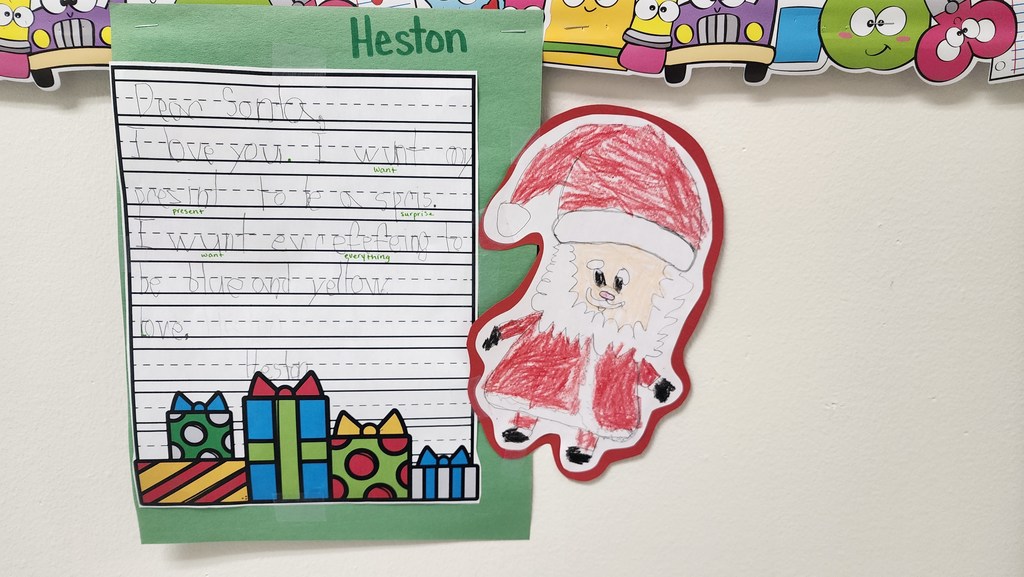 Heston
Dear Santa,
I love you. I wunt my
want
presint to be a sprns.
present surprise
I wunt evrefefeing to
want everything
be blue and yellow.
love,
Heston